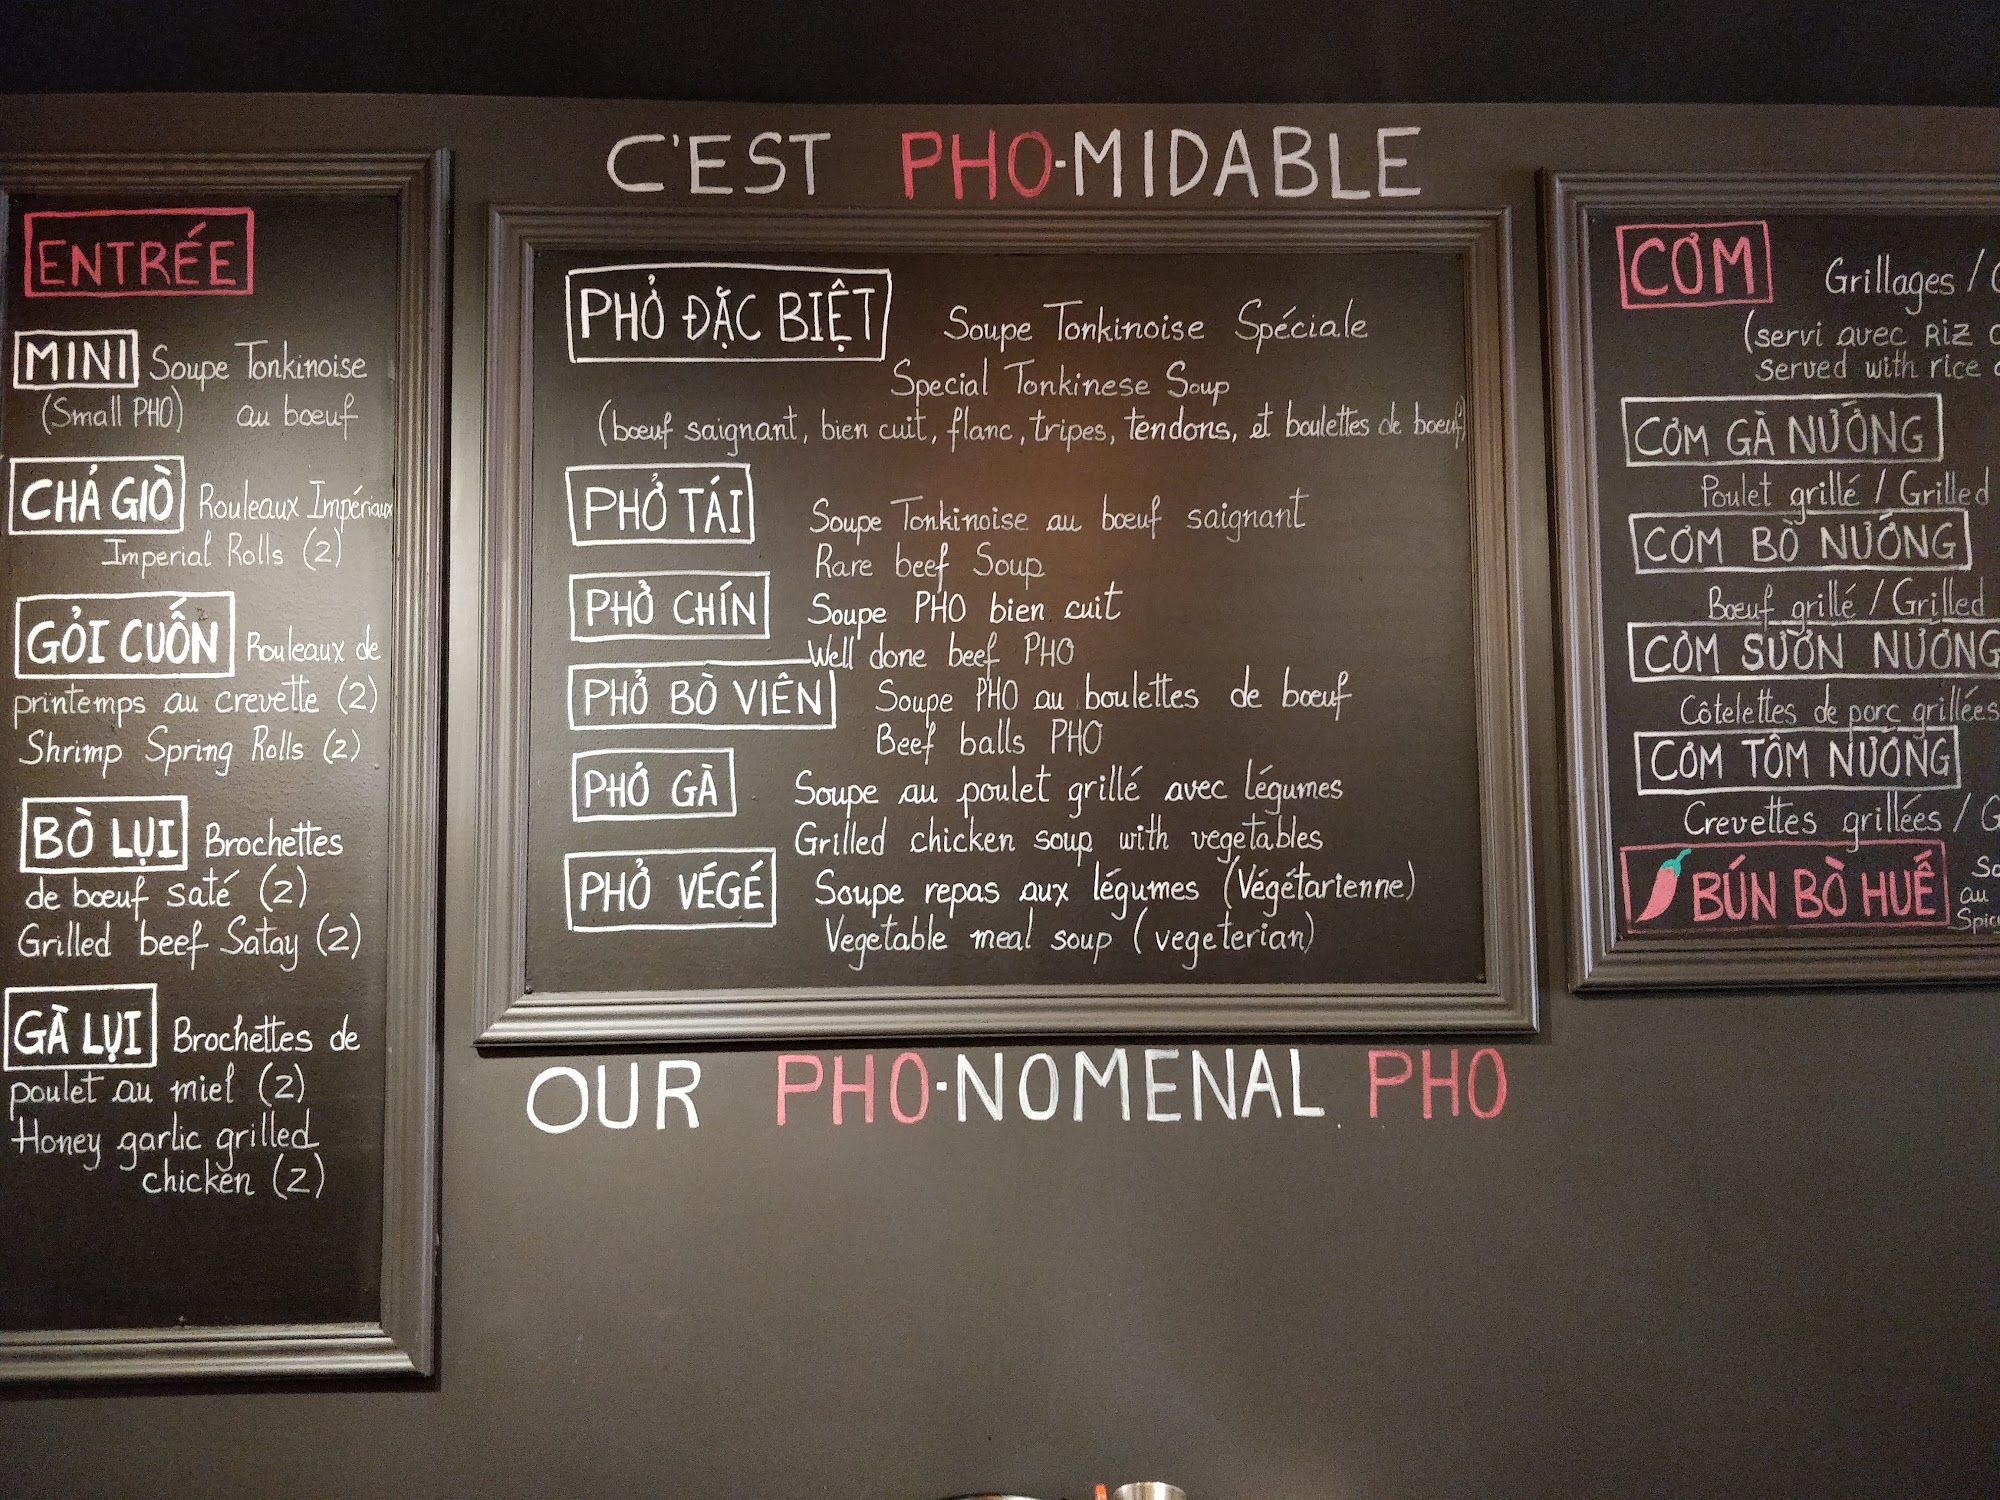 C'EST PHO-MIDABLE
ENTRÉE
MINI Soupe Tonkinoise
(Small PHO) au bœuf
CHẢ GIÒ Rouleaux Impériaux
Imperial Rolls (2)
GỎI CUỐN Rouleaux de
printemps au crevette (2)
Shrimp Spring Rolls (2)
BÒ LỤI Brochettes
de bœuf saté (2)
Grilled beef Satay (2)
GÀ LỤI Brochettes de
poulet au miel (2)
Honey garlic grilled
chicken (2)
PHỞ ĐẶC BIỆT Soupe Tonkinoise Spéciale
Special Tonkinese Soup
(bœuf saignant, bien cuit, flanc, tripes, tendons, et boulettes de bœuf)
PHỞ TÁI Soupe Tonkinoise au bœuf saignant
Rare beef Soup
PHỞ CHÍN Soupe PHO bien cuit
Well done beef PHO
PHỞ BÒ VIÊN Soupe PHO au boulettes de bœuf
Beef balls PHO
PHỚ GÀ Soupe au poulet grillé avec légumes
Grilled chicken soup with vegetables
PHỞ VÉGÉ Soupe repas aux légumes (Végétarienne)
Vegetable meal soup (vegeterian)
CƠM Grillages /
(servi avec RIZ
Served with rice
CƠM GÀ NƯỚNG
Poulet grillé / Grilled
CƠM BÒ NƯỚNG
Bœuf grillé / Grilled
CƠM SƯỜN NƯỚNG
Côtelettes de porc grillées
CƠM TÔM NƯỚNG
Crevettes grillées /
BÚN BÒ HUẾ
au
OUR PHO-NOMENAL PHO